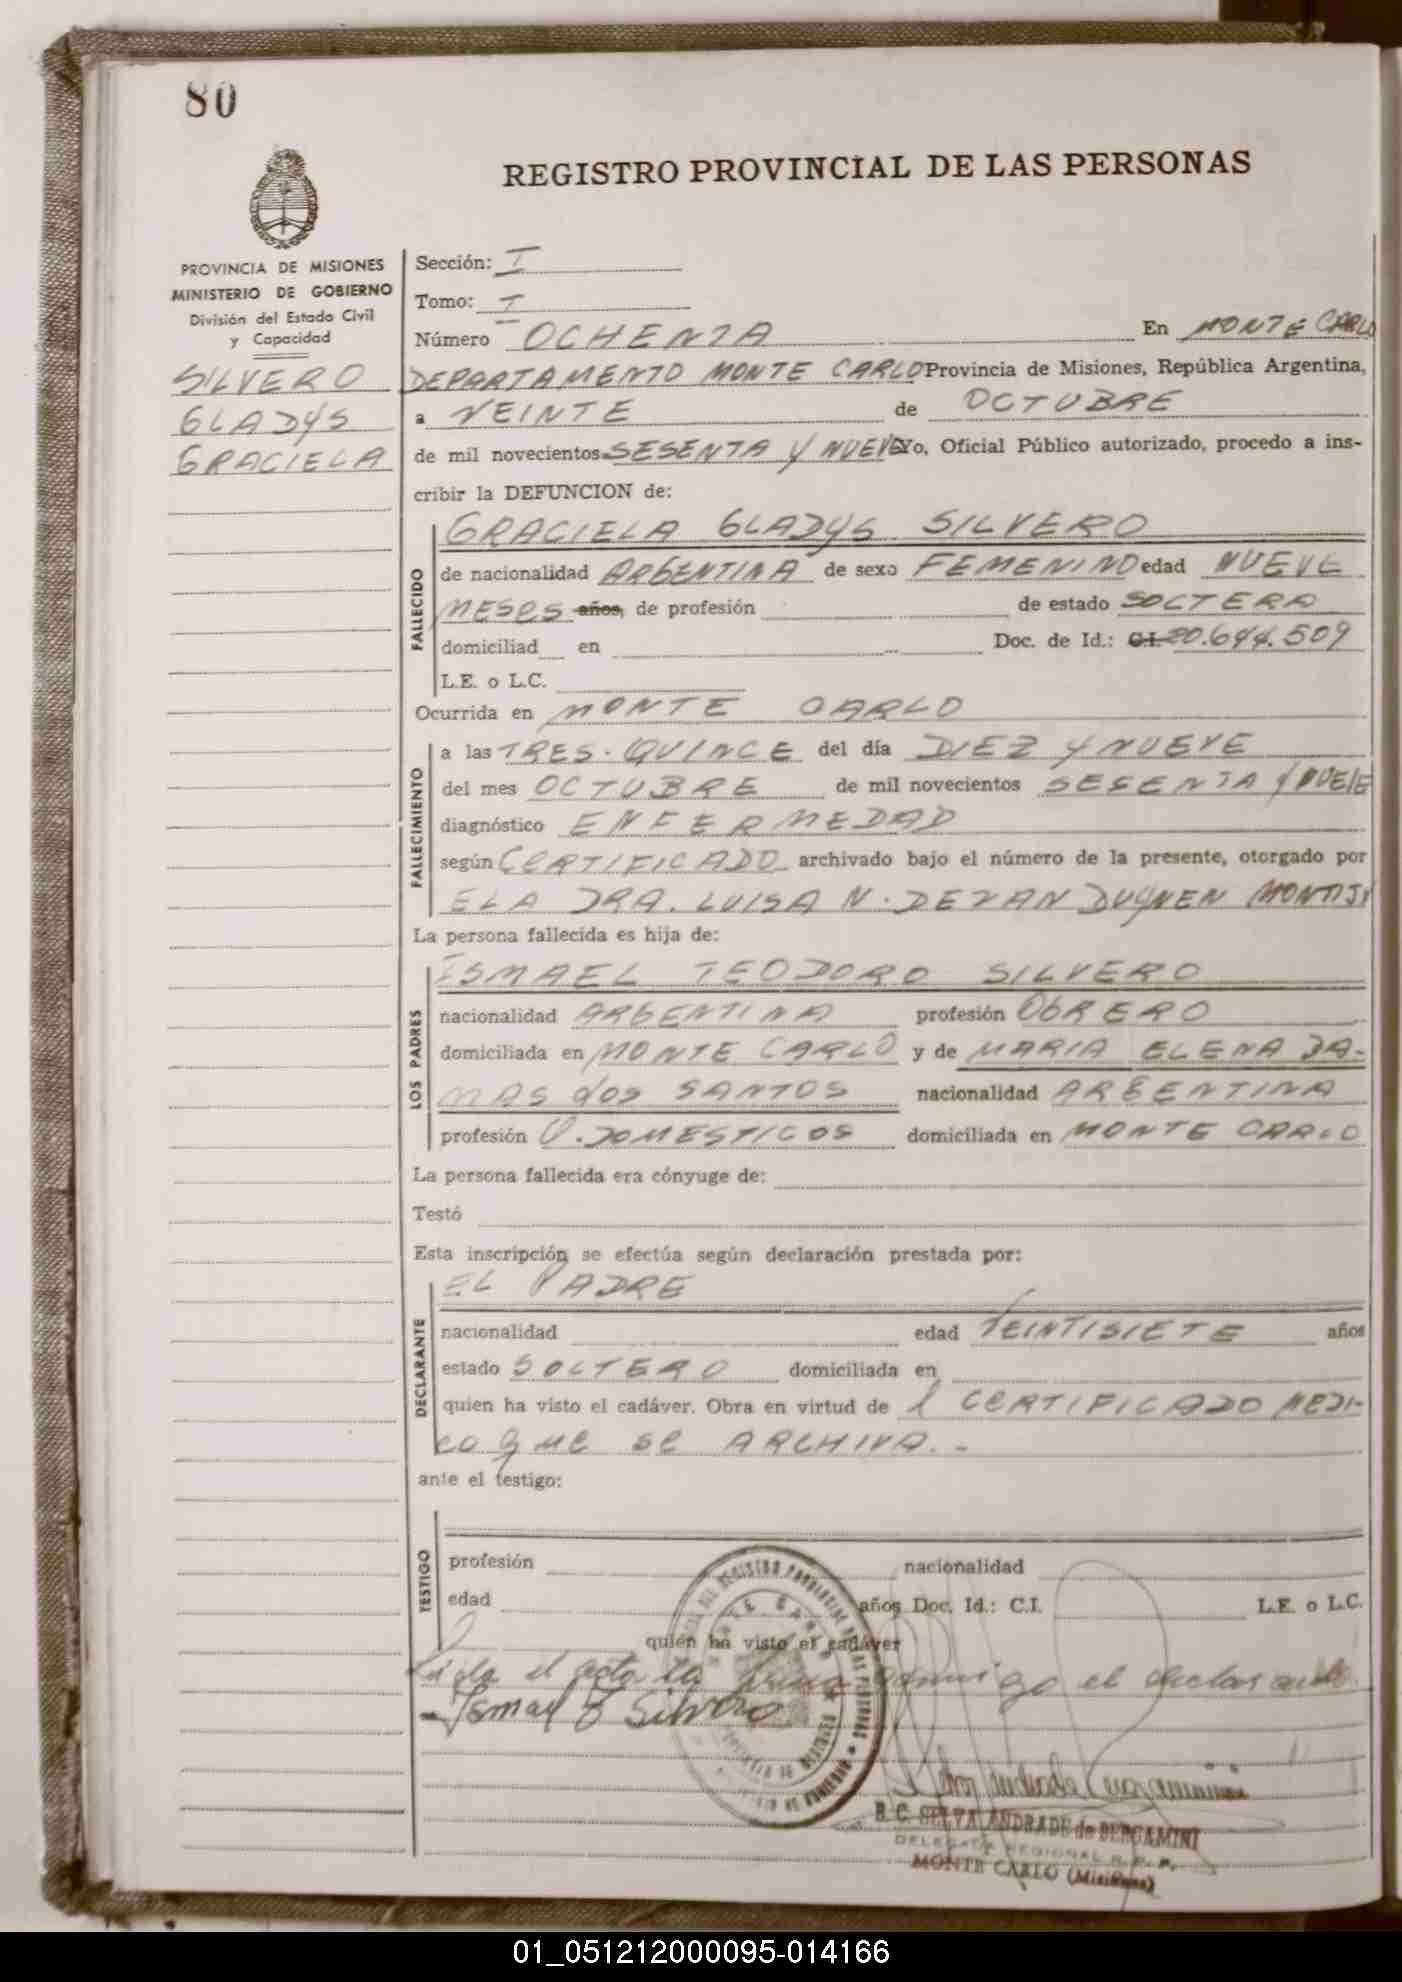 80
REGISTRO PROVINCIAL DE LAS PERSONAS
PROVINCIA DE MISIONES
MINISTERIO DE GOBIERNO
División del Estado Civil
y Capacidad
SILVERO
GLADYS
GRACIELA
Sección: I
Tomo: I
Número OCHENTA En MONTE CARLO
DEPARTAMENTO MONTE CARLO Provincia de Misiones, República Argentina,
a VEINTE de OCTUBRE
de mil novecientos SESENTA Y NUEVE Yo, Oficial Público autorizado, procedo a ins-
cribir la DEFUNCION de:
FALLECIDO
GRACIELA GLADYS SILVERO
de nacionalidad ARGENTINA de sexo FEMENINO edad NUEVE
MESES años, de profesión de estado SOLTERA
domiciliad en Doc. de Id.: C.I. 20.644.509
L.E. o L.C.
Ocurrida en MONTE CARLO
FALLECIMIENTO
a las TRES.QUINCE del día DIEZ Y NUEVE
del mes OCTUBRE de mil novecientos SESENTA Y NUEVE
diagnóstico ENFERMEDAD
según CERTIFICADO archivado bajo el número de la presente, otorgado por
DRA. LUISA N.
La persona fallecida es hija de:
LOS PADRES
ISMAEL TEODORO SILVERO
nacionalidad ARGENTINA profesión OBRERO
domiciliada en MONTE CARLO y de MARIA ELENA DA-
MAS dos SANTOS nacionalidad ARGENTINA
profesión Q. DOMESTICOS domiciliada en MONTE CARLO
La persona fallecida era cónyuge de:
Testó
Esta inscripción se efectúa según declaración prestada por:
DECLARANTE
EL PADRE
nacionalidad edad VEINTISIETE años
estado SOLTERO domiciliada en
quien ha visto el cadáver. Obra en virtud de l CERTIFICADO MEDI-
co que se ARCHIVA.-
ante el testigo:
TESTIGO
profesión nacionalidad
edad años Doc. Id.: C.I. L.E. o L.C.
quien ha visto el cadáver
Leída el acta la firma conmigo el declarante.
Ismael T Silvero
B. C. SELVA ANDRADE de BERGAMINI
DELEGADA REGIONAL R. P. P.
MONTE CARLO (Misiones)
01_051212000095-014166